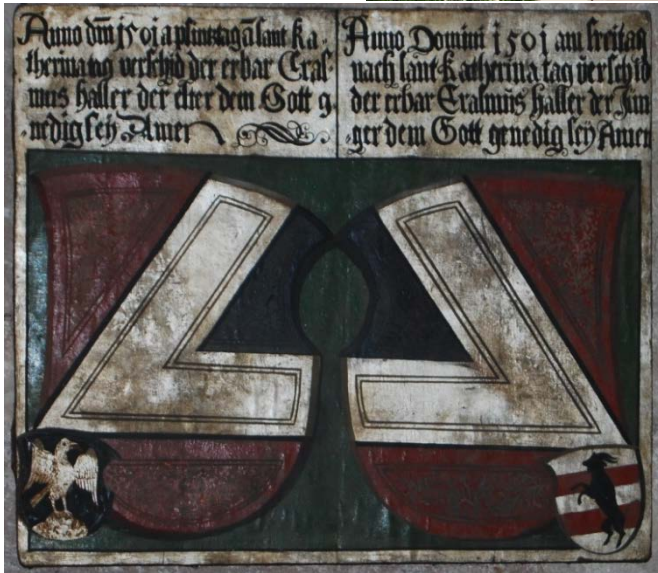 Anno dm̄ j50j a pfintztag ā sant Ka-
therina tag verschid der erbar Eras-
mus Haller der elter dem Gott g-
nedig sey Amen
Anno Domini j50j am freitag
nach sant Katherina tag verschid
der erbar Erasmus Haller der Jun-
ger dem Gott genedig sey Amen